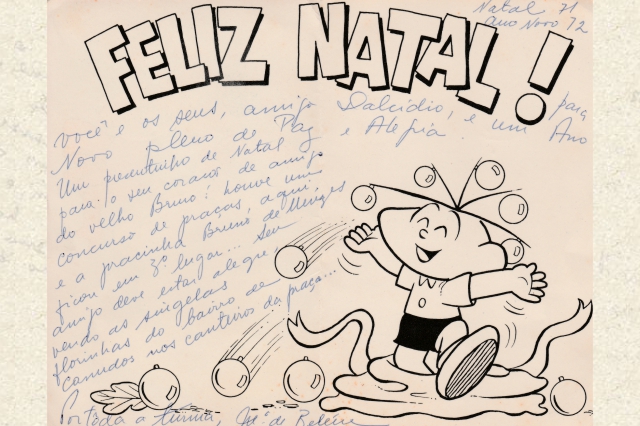 Natal 71
Ano Novo 72
FELIZ NATAL!
você e os seus, amigo Dalcídio, e um para Ano
Novo pleno de Paz e Alegria!
Um presentinho de Natal
para o seu coração de amigo
do velho Bruno: houve um
concurso de praças, aqui,
e a pracinha Bruno de Menezes
ficou em 3º lugar... Seu
amigo deve estar alegre
vendo as singelas
florinhas do bairro de
Canudos nos canteiros da praça...
Por toda a turma, de Belém